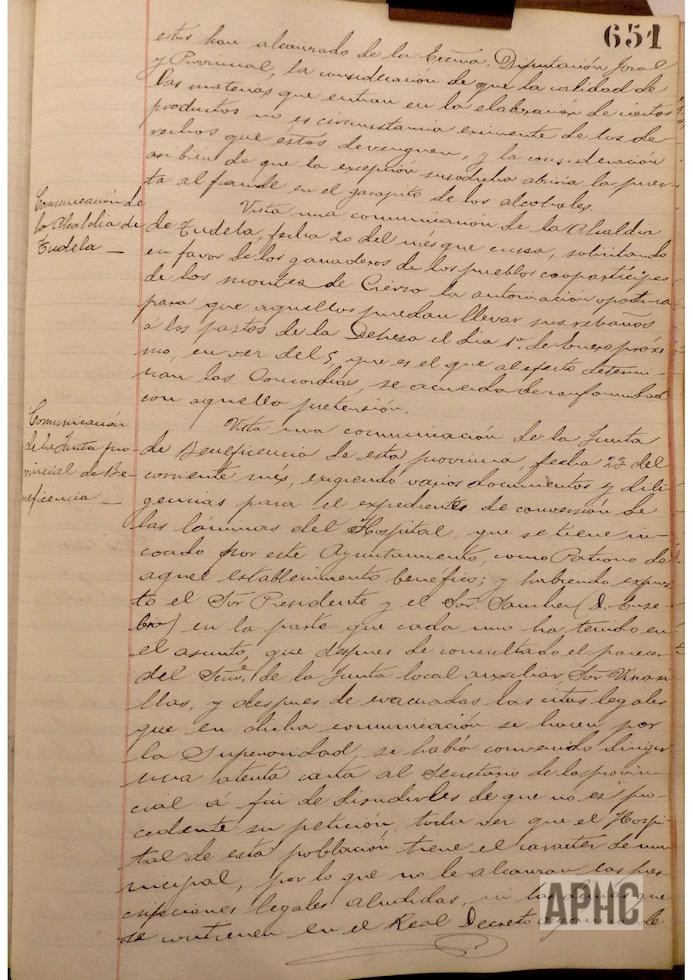 651
estos han alcanzado de la Excma. Diputación foral
y Provincial, la consideración de que la calidad de
las materias que entran en la elaboración de ciertos
productos no es circunstancia eximente de los de-
rechos que éstos devenguen, y la consideración
tambien de que la excepción susodicha abriría la puer-
ta al fraude en el garapito de los alcoholes.
Comunicación de
la Alcaldía de
Tudela —
Vista una comunicación de la Alcaldía
de Tudela, fecha 20 del més que cursa, solicitando
en favor de los ganaderos de los pueblos copartícipes
de los montes de Cierzo la autorización oportuna
para que aquellos puedan llevar sus rebaños
á los pastos de la Dehesa el dia 1º. de Enero próxi-
mo, en vez del 5, que es el que al efecto determi-
nan las Concordias, se acuerda de conformidad
con aquella pretensión.
Comunicación
de la Junta pro-
vincial de Be-
neficencia —
Vista una comunicación de la Junta
de Beneficencia de esta provincia, fecha 23 del
corriente més, exigiendo varios documentos y dili-
gencias para el expediente de conversión de
las láminas del Hospital que se tiene in-
coado por este Ayuntamiento, como Patrono de
aquel establecimiento benéfico; y habiendo expues-
to el Sor Presidente y el Sor. Sanchez (D. Euse-
bio) en la parte que cada uno ha tenido en
el asunto, que despues de consultado el parecer
del Secrio. de la Junta local auxiliar Sor
y despues de evacuadas las citas legales
que en dicha comunicación se hacen por
la Superioridad, se había convenido dirigir
una atenta carta al Secretario de la provin-
cial á fin de disuadirles de que no es pro-
cedente su petición, toda vez que el Hospi-
tal de esta población tiene el carácter de mu-
nicipal, por lo que no le alcanzan las pres-
cripciones legales aludidas, ni las que
se contienen en el Real Decreto
APHC